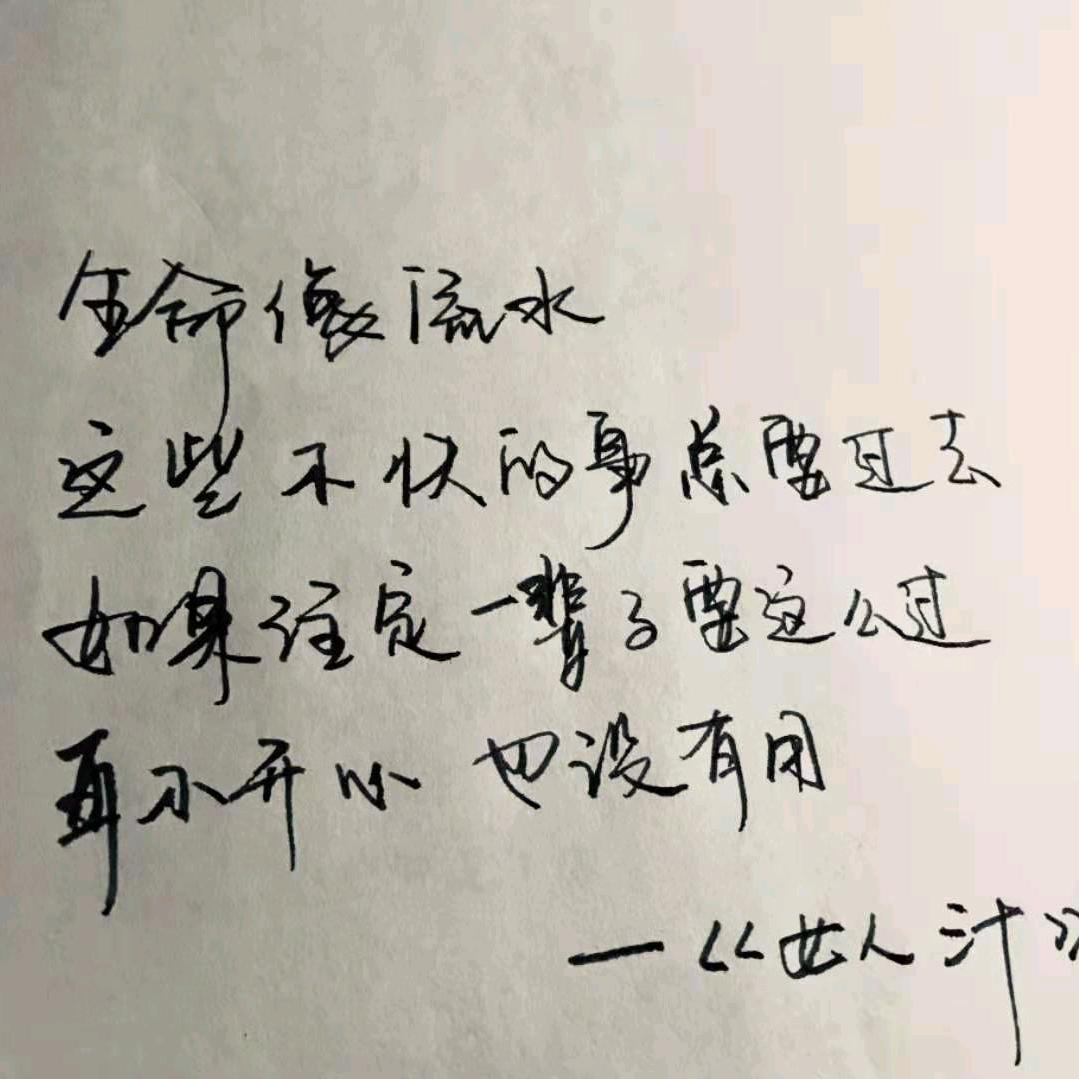 生命像流水
这些不快的事总要过去
如果注定一辈子要这么过
再不开心 也没有用
—《女人汁